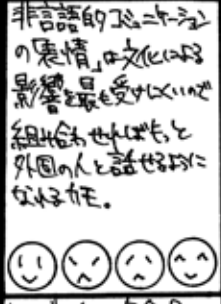 非言語的コミュニケーション
の「表情」は文化による
影響を最も受けにくいので
組み合わせればもっと
外国の人と話せるように
なれるカモ。